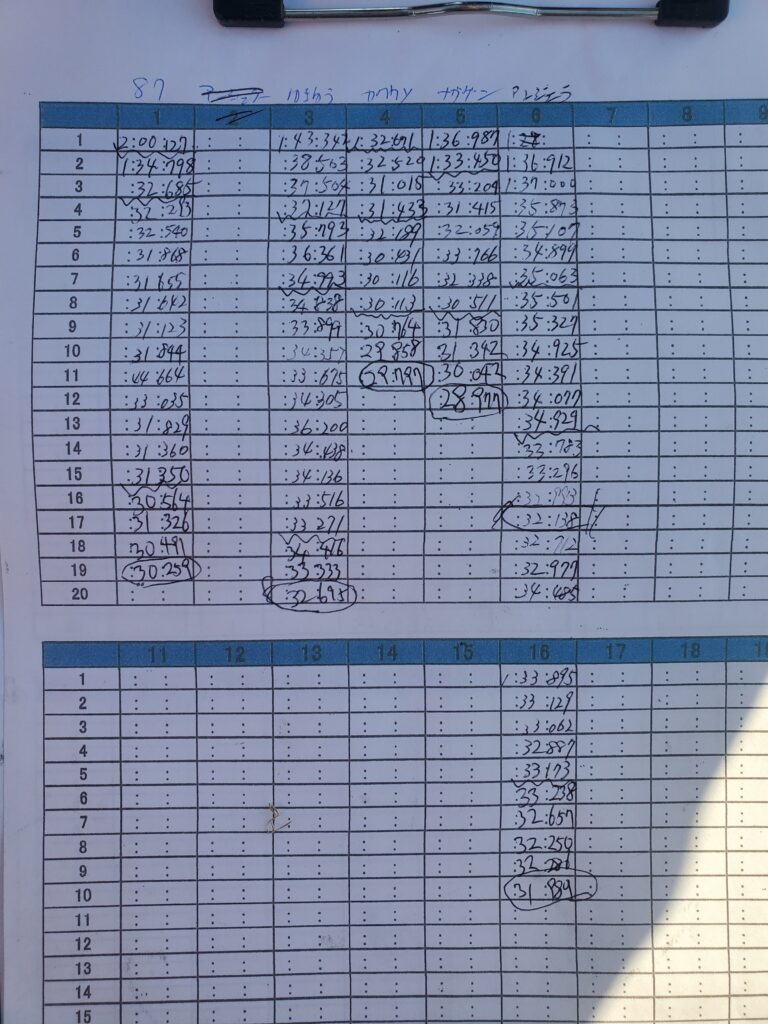 87 カワウソ ナガゲン アンジェラ
1 2 3 4 5 6 7 8 9
1 2:00:127 1:43:343 1:32:671 1:36:987
2 1:34:798 :38:503 :32:529 1:33:450 1:36:912
3 :32:685 :37:504 :31:015 :33:209 1:37:000
4 :32:293 :32:127 :31:433 :31:415 :35:873
5 :32:540 :35:793 :32:189 :32:059 :35:107
6 :31:868 :36:361 :30:431 :33:766 :34:899
7 :31:655 :34:993 :30:116 :32:338 :35:063
8 :31:642 :34:838 :30:113 :30:511 :35:501
9 :31:123 :33:899 :30:764 :31:830 :35:327
10 :31:894 :34:357 29:858 31:342 :34:925
11 :44:664 :33:675 29:797 :30:042 :34:391
12 :33:035 :34:305 28:977 :34:077
13 :31:829 :36:200 :34:929
14 :31:360 :34:438 :33:783
15 :31:350 :34:136 :33:296
16 :30:564 :33:516
17 :31:326 :33:271 :32:138
18 :30:491 :34:416 :32:712
19 :30:259 :33:333 :32:977
20 :32:695 :34:485
11 12 13 14 15 16 17 18
1 1:33:895
2 :33:129
3 :33:062
4 :32:887
5 :33:173
6 :33:238
7 :32:657
8 32:250
9
10 31:839
11
12
13
14
15